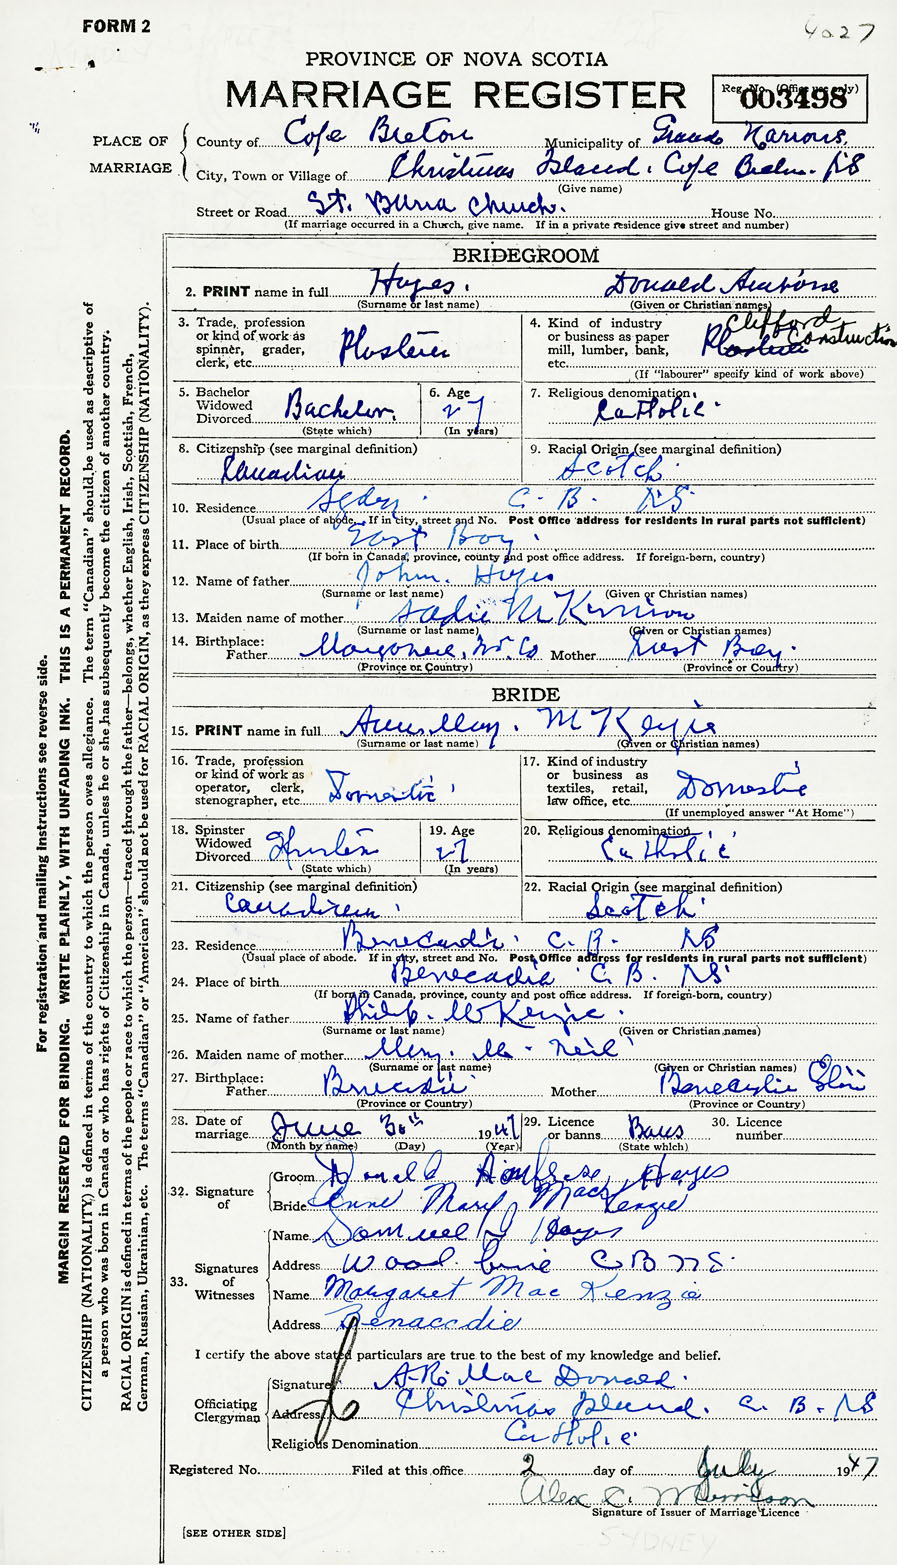 FORM 2
4027
PROVINCE OF NOVA SCOTIA
MARRIAGE REGISTER
Reg. No. (Office use only)
003498
PLACE OF MARRIAGE
County of Cape Breton Municipality of Grand Narrows,
City, Town or Village of Christmas Island. Cape Breton. NS
(Give name)
Street or Road St. Church. House No.
(If marriage occurred in a Church, give name. If in a private residence give street and number)
BRIDEGROOM
2. PRINT name in full Hayes. Donald Ambrose
(Surname or last name) (Given or Christian names)
3. Trade, profession or kind of work as spinner, grader, clerk, etc. Plasterer
4. Kind of industry or business as paper mill, lumber, bank, etc. Clifford Construction
(If "labourer" specify kind of work above)
5. Bachelor Widowed Divorced Bachelor
(State which)
6. Age 27
(In years)
7. Religious denomination Catholic
8. Citizenship (see marginal definition) Canadian
9. Racial Origin (see marginal definition) Scotch
10. Residence C. B. NS
(Usual place of abode. If in city, street and No. Post Office address for residents in rural parts not sufficient)
11. Place of birth East Bay
(If born in Canada, province, county and post office address. If foreign-born, country)
12. Name of father John. Hayes
(Surname or last name) (Given or Christian names)
13. Maiden name of mother Sadie McKinnon
(Surname or last name) (Given or Christian names)
14. Birthplace: Father Margaree, Co Mother East Bay
(Province or Country) (Province or Country)
BRIDE
15. PRINT name in full Ann May. McKenzie
(Surname or last name) (Given or Christian names)
16. Trade, profession or kind of work as operator, clerk, stenographer, etc. Domestic
17. Kind of industry or business as textiles, retail, law office, etc. Domestic
(If unemployed answer "At Home")
18. Spinster Widowed Divorced
(State which)
19. Age 27
(In years)
20. Religious denomination Catholic
21. Citizenship (see marginal definition) Canadian
22. Racial Origin (see marginal definition) Scotch
23. Residence Benecadie C. B. NS
(Usual place of abode. If in city, street and No. Post Office address for residents in rural parts not sufficient)
24. Place of birth Benecadia C. B. NS
(If born in Canada, province, county and post office address. If foreign-born, country)
25. Name of father Philip. McKenzie.
(Surname or last name) (Given or Christian names)
26. Maiden name of mother Mary. Mc Neil
(Surname or last name) (Given or Christian names)
27. Birthplace: Father Benecadie Mother
(Province or Country) (Province or Country)
28. Date of marriage June 30th 1947
(Month by name) (Day) (Year)
29. Licence or banns Banns
(State which)
30. Licence number
32. Signature of
Groom Donald Ambrose Hayes
Bride Anne Mary MacKenzie
33. Signatures of Witnesses
Name Samuel J Hayes
Address Woodbine C B N S.
Name Margaret MacKenzie
Address Benacadie
I certify the above stated particulars are true to the best of my knowledge and belief.
Officiating Clergyman
Signature MacDonald.
Address Christmas Island. C. B. NS
Religious Denomination Catholic
Registered No. Filed at this office 2 day of July 1947
Alex C. Morrison
Signature of Issuer of Marriage Licence
[SEE OTHER SIDE]
SYDNEY
For registration and mailing instructions see reverse side.
MARGIN RESERVED FOR BINDING. WRITE PLAINLY, WITH UNFADING INK. THIS IS A PERMANENT RECORD.
CITIZENSHIP (NATIONALITY) is defined in terms of the country to which the person owes allegiance. The term "Canadian" should be used as descriptive of
a person who was born in Canada or who has rights of Citizenship in Canada, unless he or she has subsequently become the citizen of another country.
RACIAL ORIGIN is defined in terms of the people or race to which the person—traced through the father—belongs, whether English, Irish, Scottish, French,
German, Russian, Ukrainian, etc. The terms "Canadian" or "American" should not be used for RACIAL ORIGIN, as they express CITIZENSHIP (NATIONALITY).